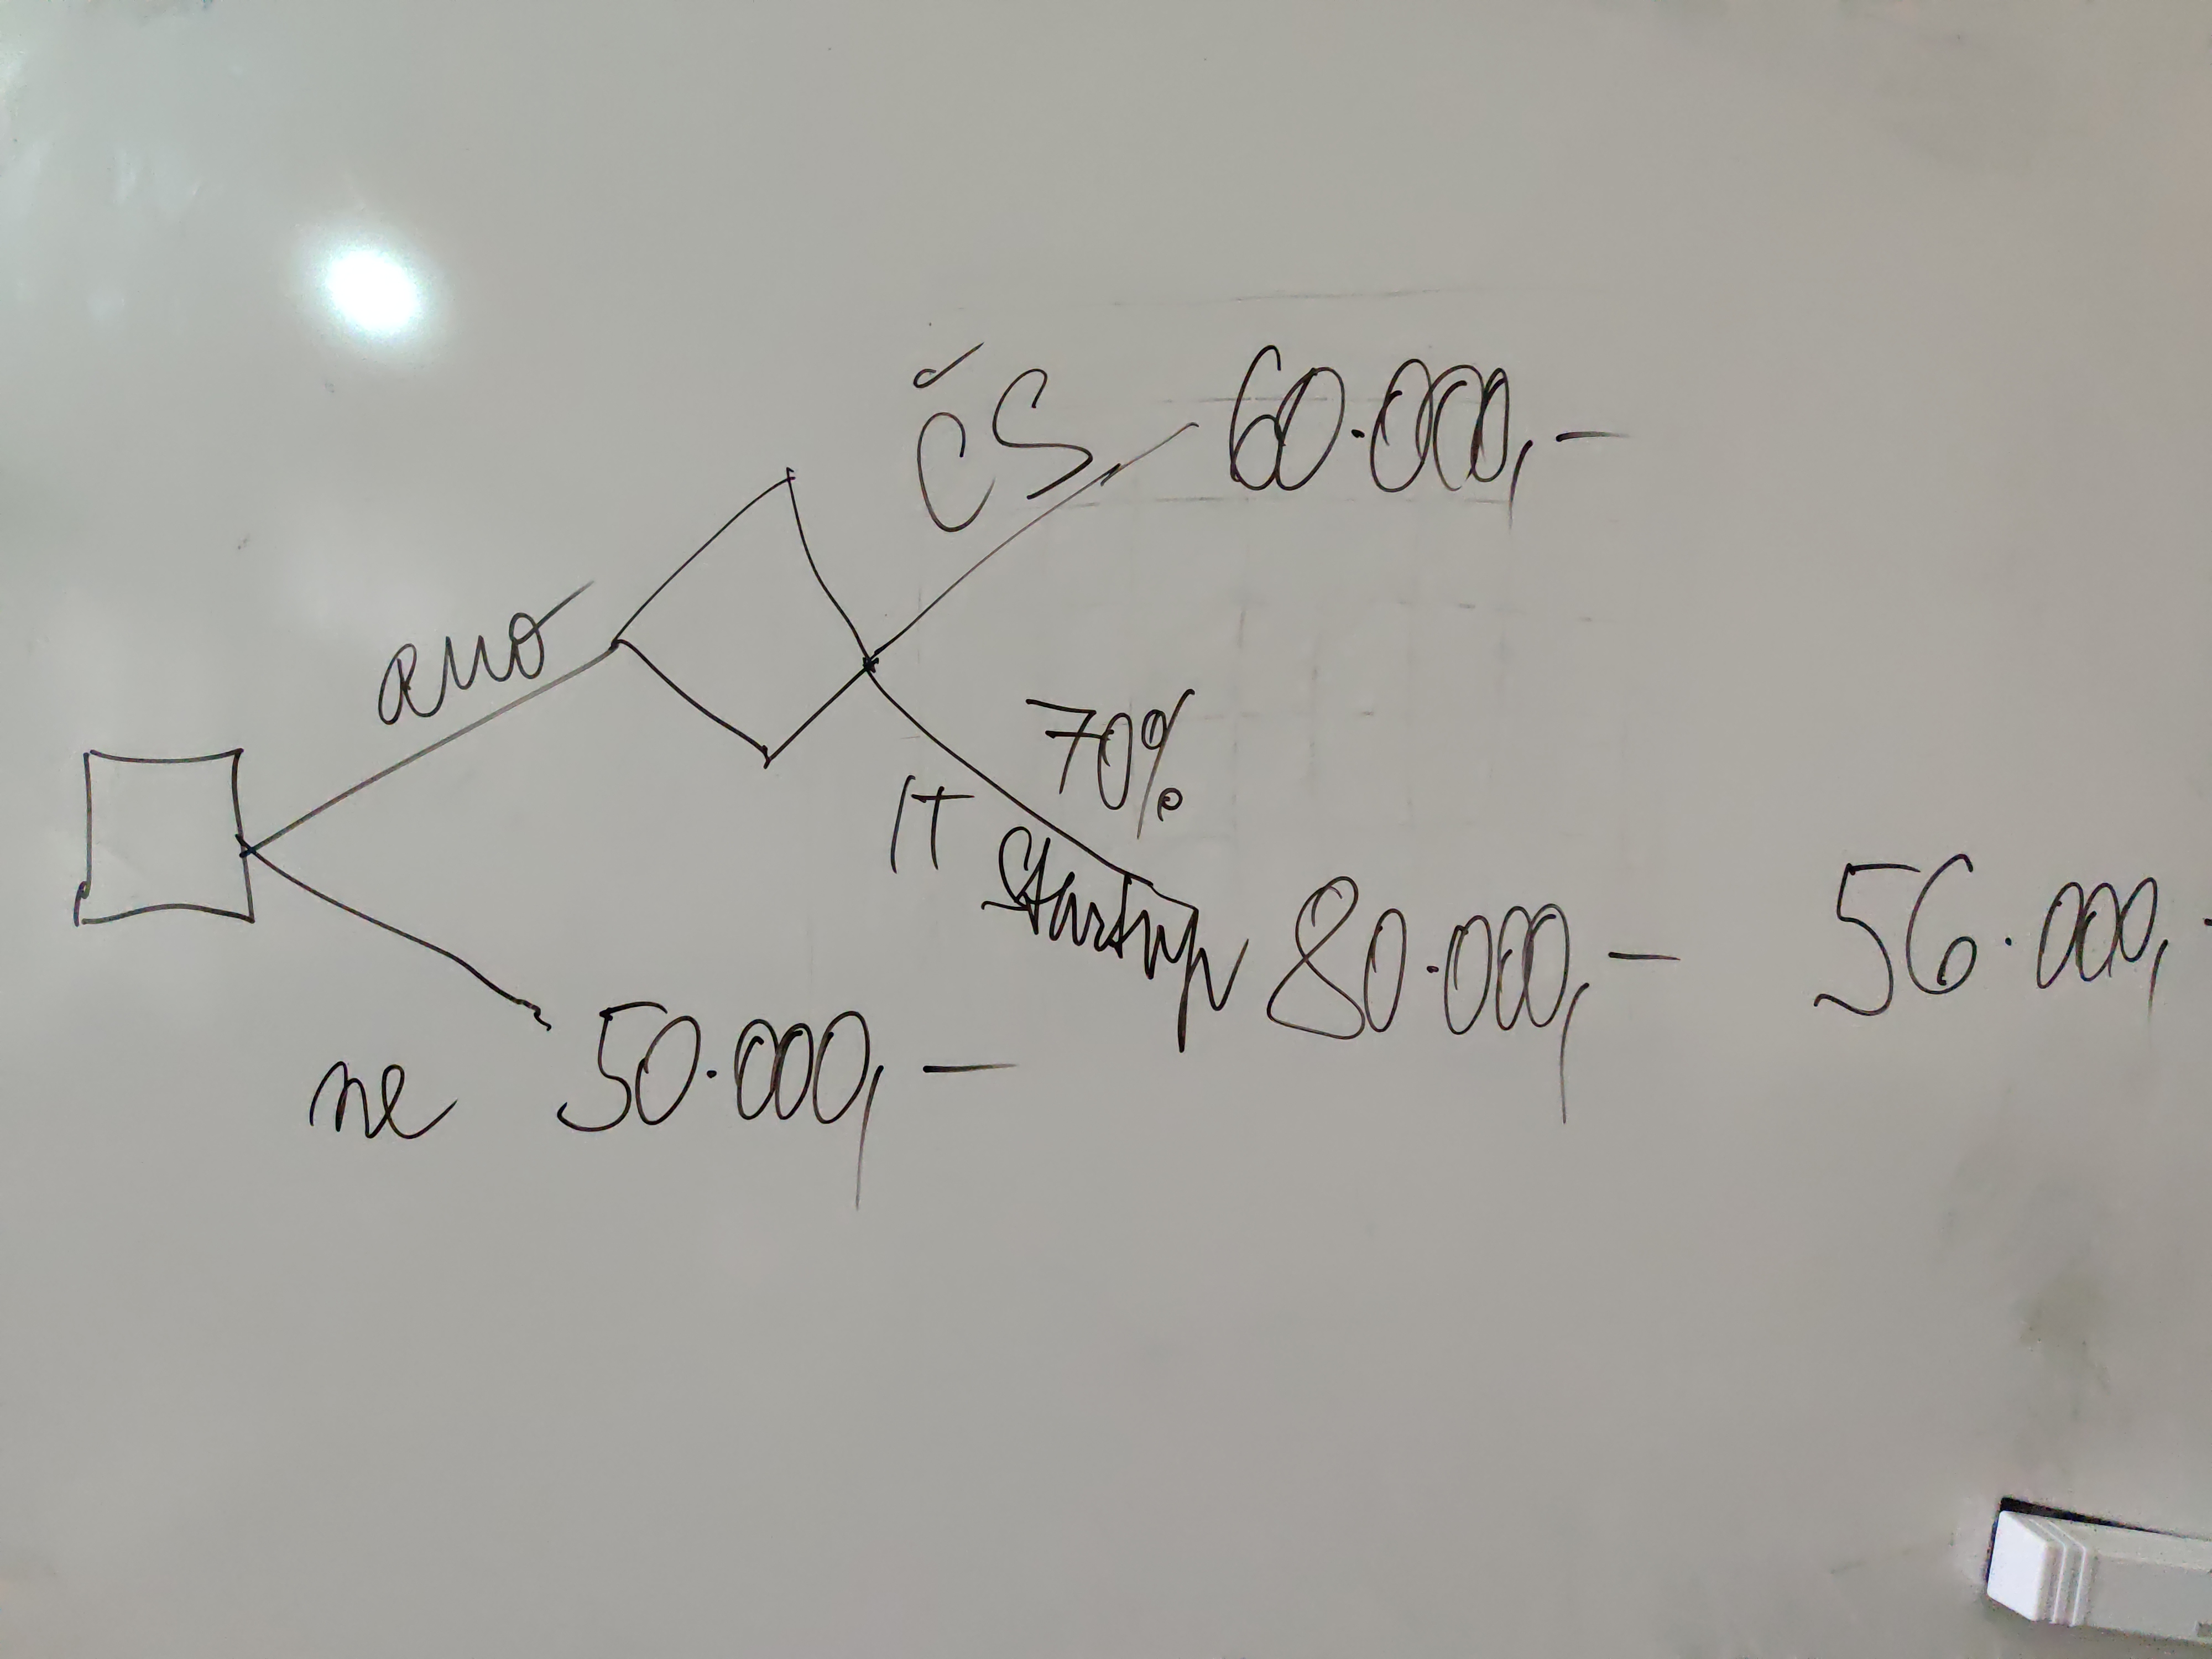 ČS 60.000,-
ano
70%
IT
Startup 80.000,- 56.000,-
ne 50.000,-